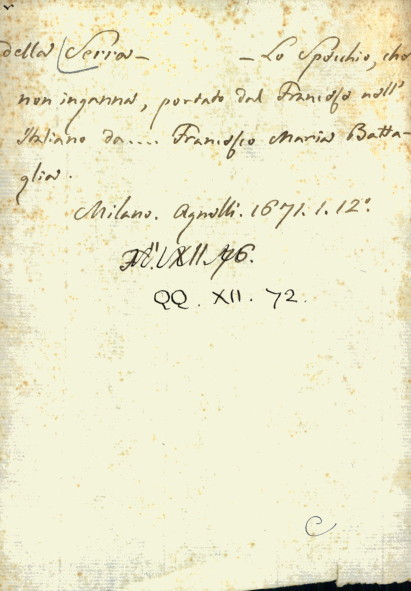 della (Serra - - Lo Specchio, che
non inganna, portato dal Francese nell'
Italiano da.... Francesco Maria Batta-
glia.
Milano. Agnelli. 1671. 1. 12°.
XII. 76.
QQ. XII. 72.
C